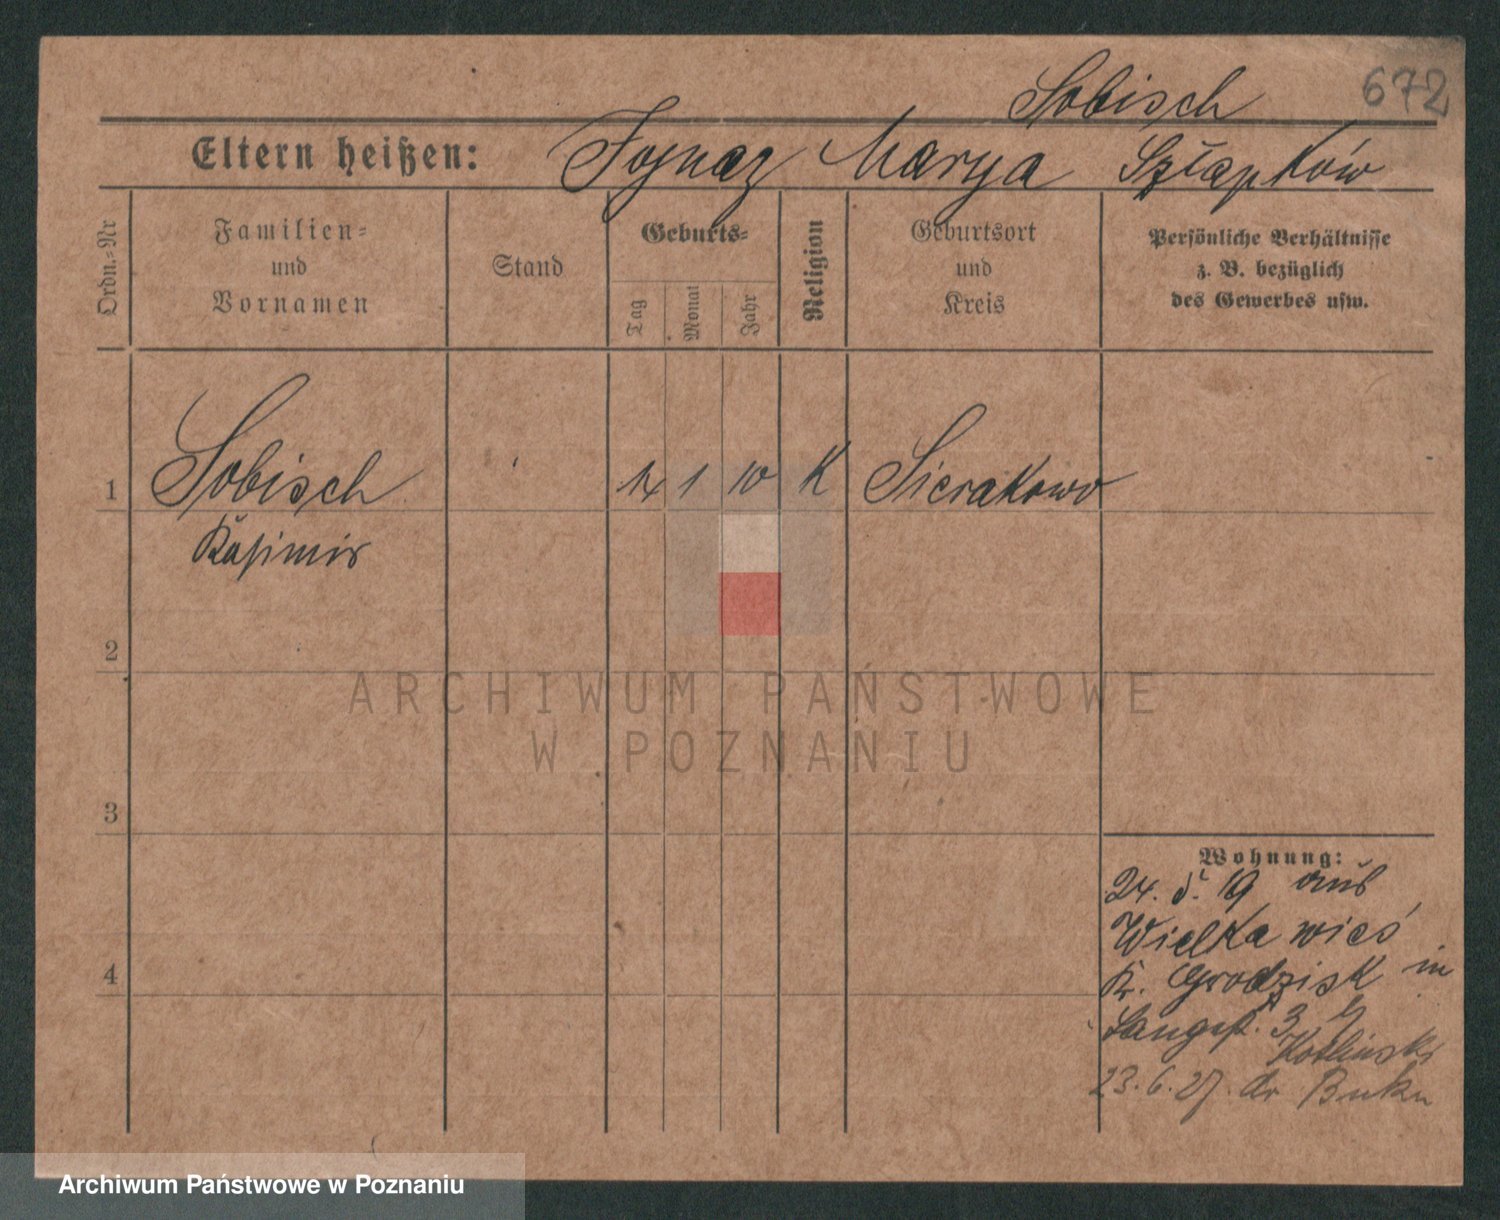 672
Sobisch
Eltern heißen: Ignaz Marya Szłapków
Ordn.-Nr
Familien-
und
Vornamen
Stand
Geburts-
Tag
Monat
Jahr
Religion
Geburtsort
und
Kreis
Persönliche Verhältnisse
z. B. bezüglich
des Gewerbes usw.
1 Sobisch 1 10 K Sierakowo
Kasimir
2
3
4
Wohnung:
24. 5. 19 aus
Wielka wieś
Kr. Grodzisk in
Langest. 3
Kotlinski
23. 6. 27. Buku
ARCHIWUM PAŃSTWOWE
W POZNANIU
Archiwum Państwowe w Poznaniu